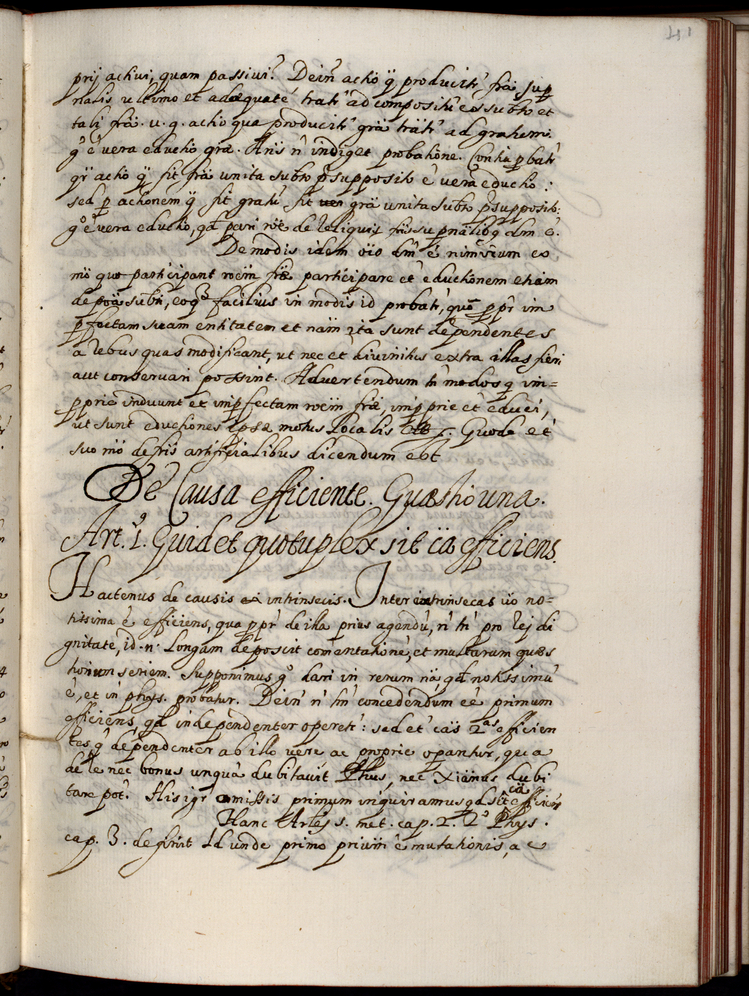 41
prij activi, quam passivi? Dein actio q̃ producitr̃ frã sup̲
nalis ultimo et adæquate trahr̃ ad compositũ ex subto et
tali frã. v. g. actio qua producitr̃ grã trahr̃ ad grahem̃
gº ẽ vera eductio grã. Ãns ñ indiget probatione. Contra p̲batr̃
qr̃ actio q̃ fit frã unita subto p̲supposito ẽ vera eductio:
sed p̲ actionem q̃ fit gratũ, fit grã unita subto p̲supposito:
gº ẽ vera eductio, qd pari rõe de reliquis
De modis idem oĩo dm̃ ẽ nimirum eo
mõ quo participant rõem frã participare et eductionem etiam
de põa subti, eoq3 facilius in modis id probatr̃, quo p̲p̲r̃ im
p̲fectam suam entitatem et nam ita sunt dependentes
a rebus quas modificant, ut nec et divinitus extra illas fieri
aut conservari possint. Advertendum tñ modos q̃ im=
p̲prie induunt et imp̲fectam rõem frã, imp̲prie et educi,
ut sunt eductiones ipsæ motus Localis Quod et
suo mõ de fris artificialibus dicendum est
De Causa efficiente. Quæstio una.
Art. 1.º Quid et quotuplex sit cã efficiens.
Hactenus de causis ex intrinsecis. Inter extrinsecas vº no-
tissima ẽ efficiens, qua p̲p̲r̃ de illa prius agendũ, ñ tñ pro rej di
gnitate, id. n. Longam deposcit comentationẽ, et multarum quæs
tionum seriem. Supponimus gº dari in rerum nã, qd notissimũ
ẽ, et in phys. probatur. Dein ñ tm̃ concedendum ẽe primum
efficiens, qd independenter operetr̃: sed et cãs 2.as efficien
tes, q̃ dependenter ab illo vere ac proprie op̲antur, qua
de re nec bonus unquã dubitavit Phus, nec Xianus dubi
tare pot̃. His igr̃ omissis primum inquiramus qd sit cã efficiens
Hanc Arles 5. met. cap. 2. 2.º Phys.
cap. 3. definit Id unde primo primũ ẽ mutationis, a c